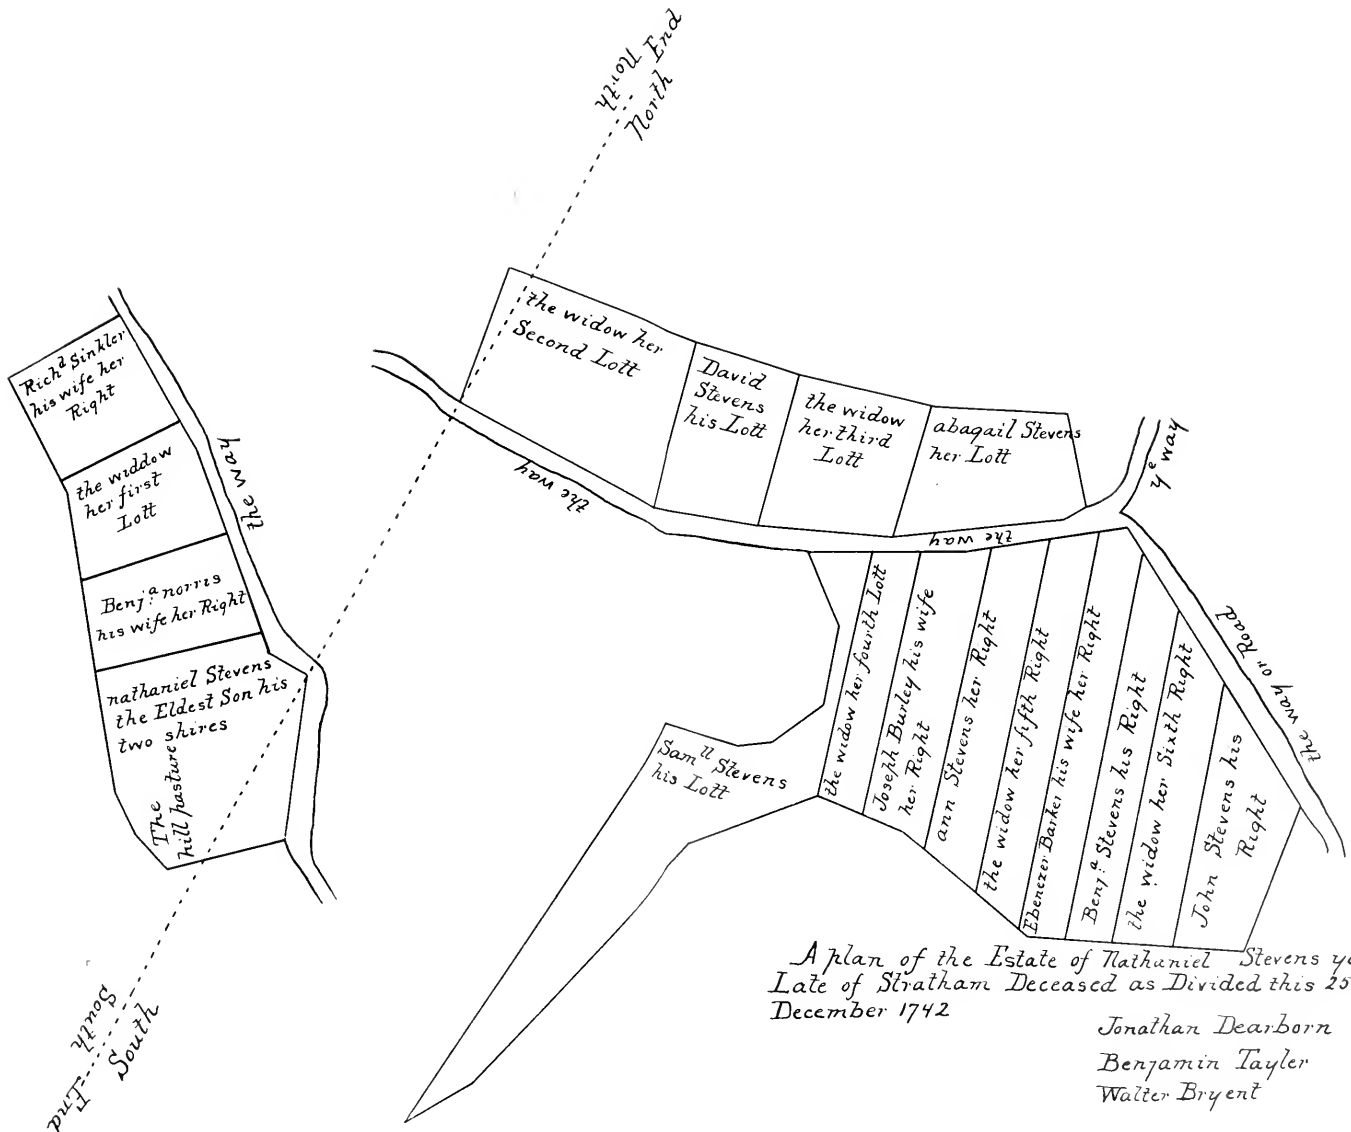 North
North End
Richd Sinkler
his wife her
Right
the widdow
her first
Lott
Benja. norris
his wife her Right
nathaniel Stevens
the Eldest Son his
two shires
The
hill pasture
the way
the way
the widow her
Second Lott
David
Stevens
his Lott
the widow
her third
Lott
abagail Stevens
her Lott
the way
the way
ye way
the way or Road
Samll Stevens
his Lott
the widow her fourth Lott
Joseph Burley his wife
her Right
ann Stevens her Right
the widow her fifth Right
Ebenezer Barker his wife her Right
Benja. Stevens his Right
the widow her Sixth Right
John Stevens his
Right
South
South
End
A plan of the Estate of Nathaniel Stevens
Late of Stratham Deceased as Divided this 25
December 1742
Jonathan Dearborn
Benjamin Tayler
Walter Bryent